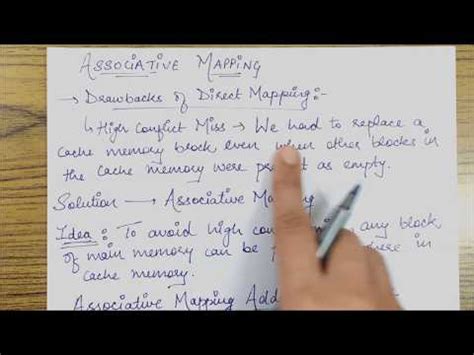 ASSOCIATIVE MAPPING
→ Drawbacks of Direct Mapping:-
↳ High Conflict Miss → We had to replace a
cache memory block even when other blocks in
the cache memory were present as empty.
Solution → Associative Mapping
Idea: To avoid high any block
of main memory can be in
cache memory.
Associative Mapping